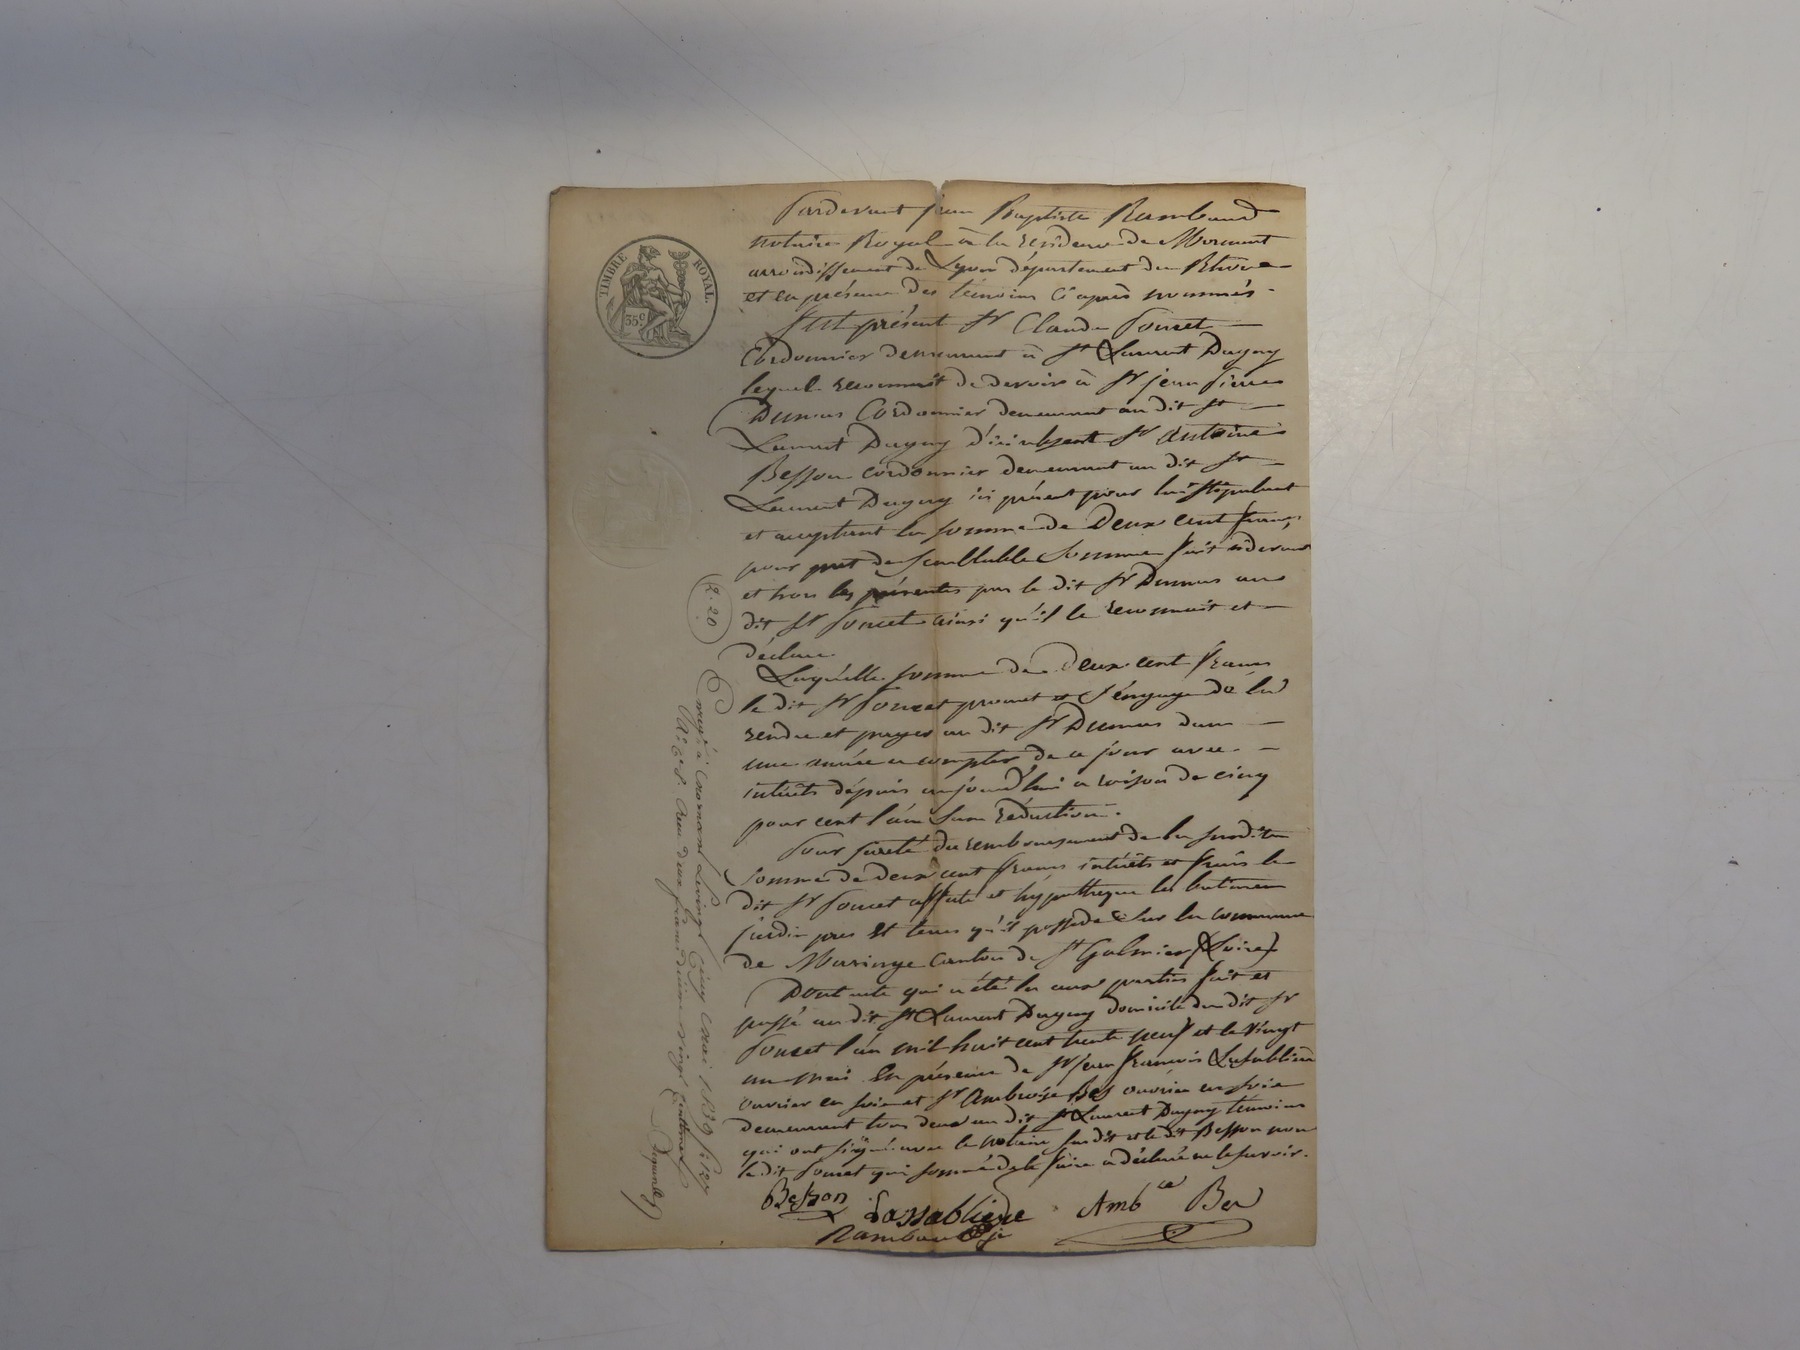 TIMBRE ROYAL.
35c.
Pardevant jean Baptiste Rambaud
notaire Royal à la residence de Mornant
arrondissement de Lyon département du Rhône
et en présence des témoins ci après nommés
fut présent Sr Claude Poncet
Cordonnier demeurant à St Laurent Dagny
lequel reconnait de devoir à Sr jean Pierre
Dumas Cordonnier demeurant au dit St
Laurent Dagny d'ici absent Sr Antoine
Besson cordonnier demeurant au dit St
Laurent Dagny ici présent pour lui stipulant
et acceptant la somme de Deux cent francs,
pour pret de semblable somme fait cidevant
et hors les présentes par le dit Sr Dumas au
dit Sr Poncet ainsi qu'il le reconnait et
déclare.
Laquélle somme de deux cent francs
le dit Sr Poncet promet et s'éngage dé lui
rendre et payer au dit Sr Dumas dans
une année a compter de ce jour avec
intérêts dépuis aujourd'hui a raison de cinq
pour cent l'an sans réduction.
Pour sureté du remboursement de la susdite
somme de deux cent francs intérêts et frais le
dit Sr Poncet affecte et hypothèque les batimens
jardin pres et terres qu'il possède sur la commune
de Maringe Canton de St Galmier (Loire)
Dont acte qui a été lu aux parties fait et
passé au dit St Laurent Dagny domicile du dit Sr
Poncet l'an mil huit cent trente neuf et le vingt
un mai En présence de Sr jean françois Lassabliere
ouvrier en soie et Sr Ambroise Bes ouvrier en soie
demeurant tous deux au dit St Laurent Dagny témoins
qui ont signé avec le notaire susdit et le dit Besson non
le dit Poncet qui sommé de le faire a déclaré ne le savoir.
Besson Lassabliere Ambce Bes
Rambaud
2.20
Enregé à Mornant le vingt cinq mai 1839 folio
Reçu deux francs vingt centimes